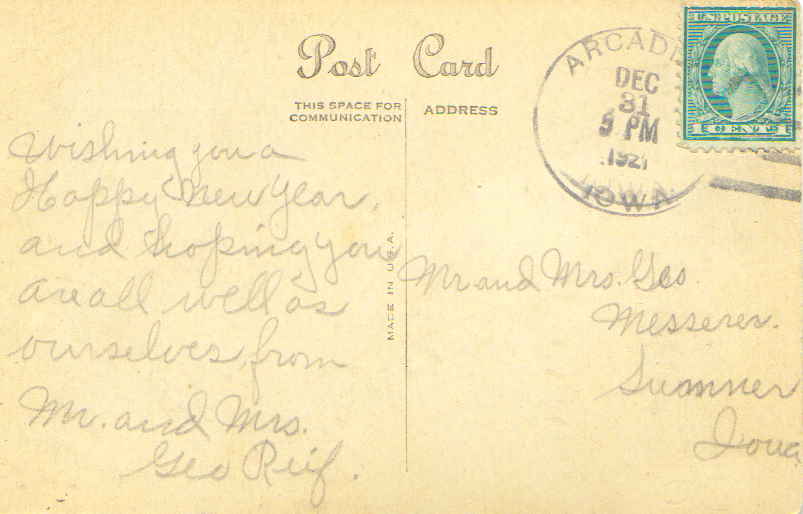 Post Card
THIS SPACE FOR
COMMUNICATION
ADDRESS
ARCADIA
DEC
31
5 PM
1921
IOWA
U.S. POSTAGE
1 CENT 1
Wishing you a
Happy New Year,
and hoping you
are all well as
ourselves, from
Mr. and Mrs.
Geo Reif.
MADE IN U.S.A.
Mr and Mrs. Geo.
Messerer.
Sumner
Iowa